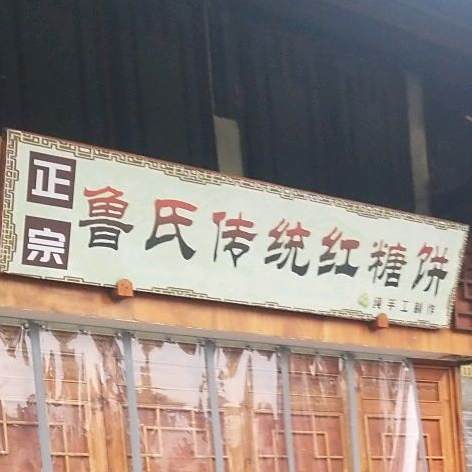 正宗
鲁氏传统红糖饼
纯手工制作